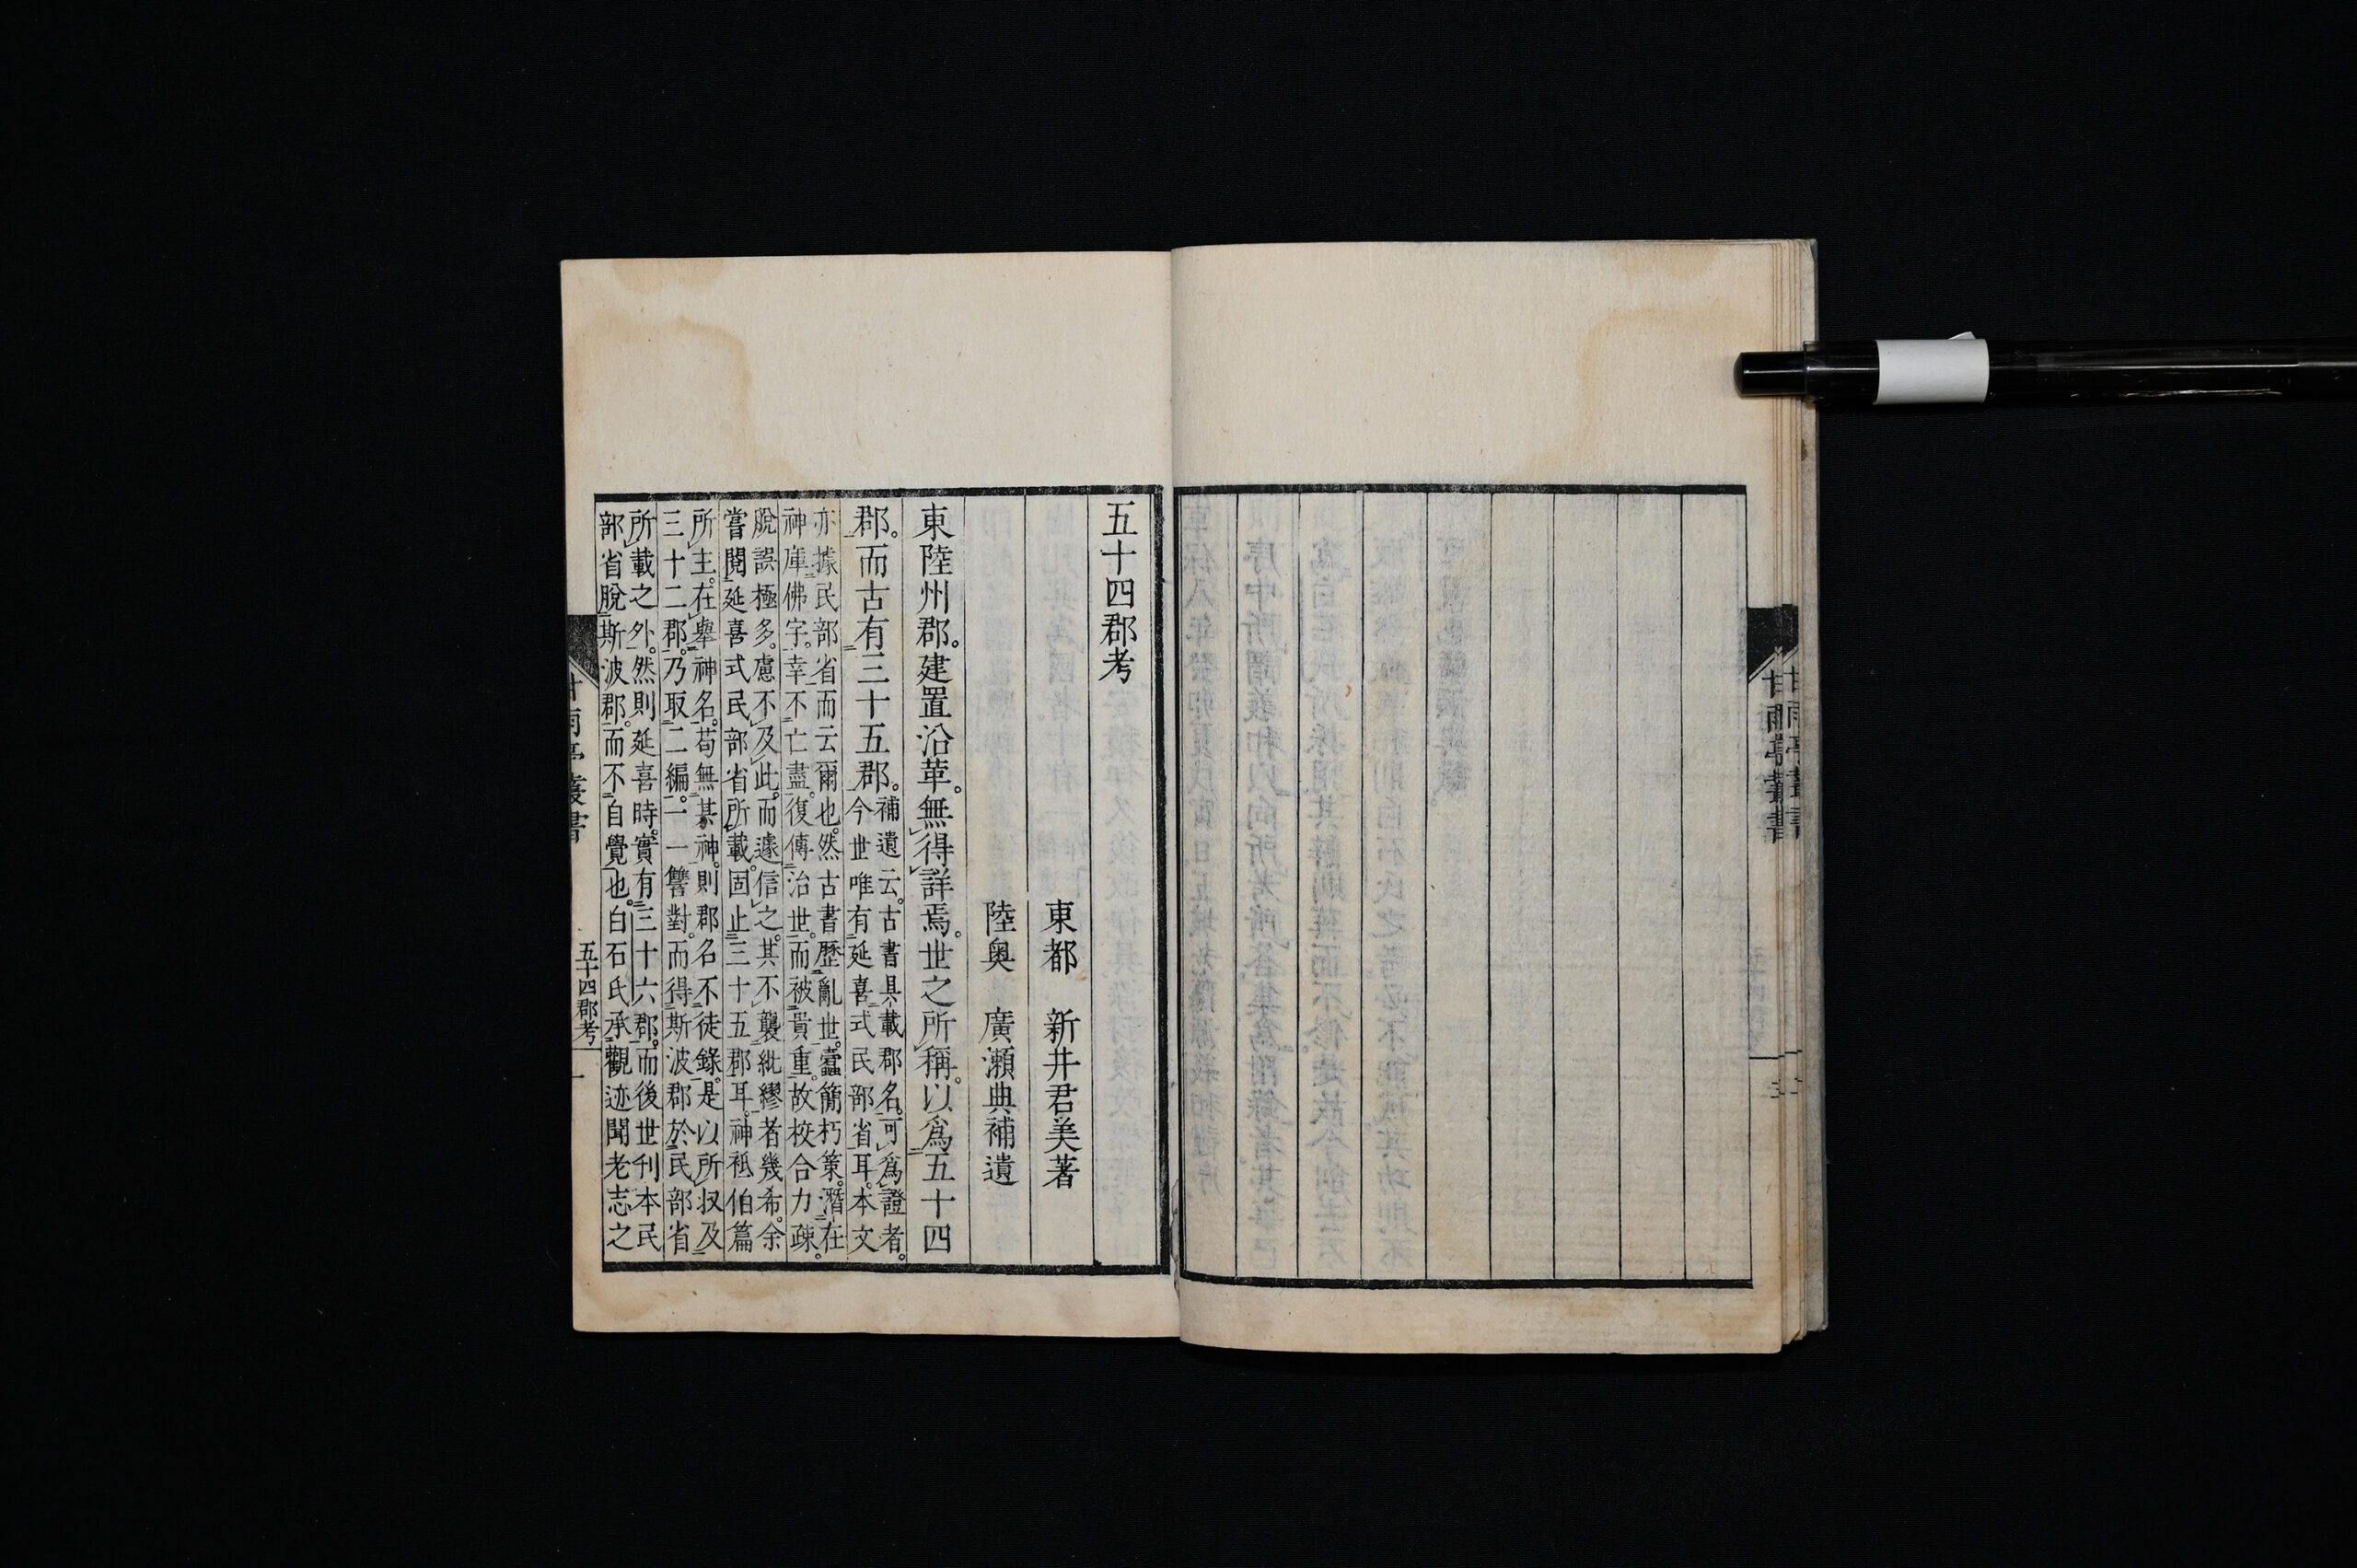 五十四郡考
東都　新井君美著
陸奥　廣瀬典補遺
東陸州郡。建置沿革。無得詳焉。世之所稱。以爲五十四
郡。而古有三十五郡。
補遺云。古書具載郡名。可爲證者。
今世唯有延喜式民部省耳。本文
亦據民部省而云爾也。然古書歷亂世。蠹簡朽策。潛在
神庫佛宇。幸不亡盡。復傳治世。而被貴重。故校合力疎。
脫誤極多。慮不及此。而遽信之。其不襲紕繆者幾希。余
嘗閱延喜式民部省所載。固止三十五郡耳。神祇伯篇
所主。在舉神名。苟無某神。則郡名不徒錄。是以所収及
三十二郡。乃取二編。一一讐對。而得斯波郡於民部省
所載之外。然則延喜時。實有三十六郡。而後世刊本民
部省脫斯波郡。而不自覺也。白石氏承觀迹聞老志之
甘雨亭叢書
五十四郡考
一
甘雨亭叢書
甘雨亭叢書